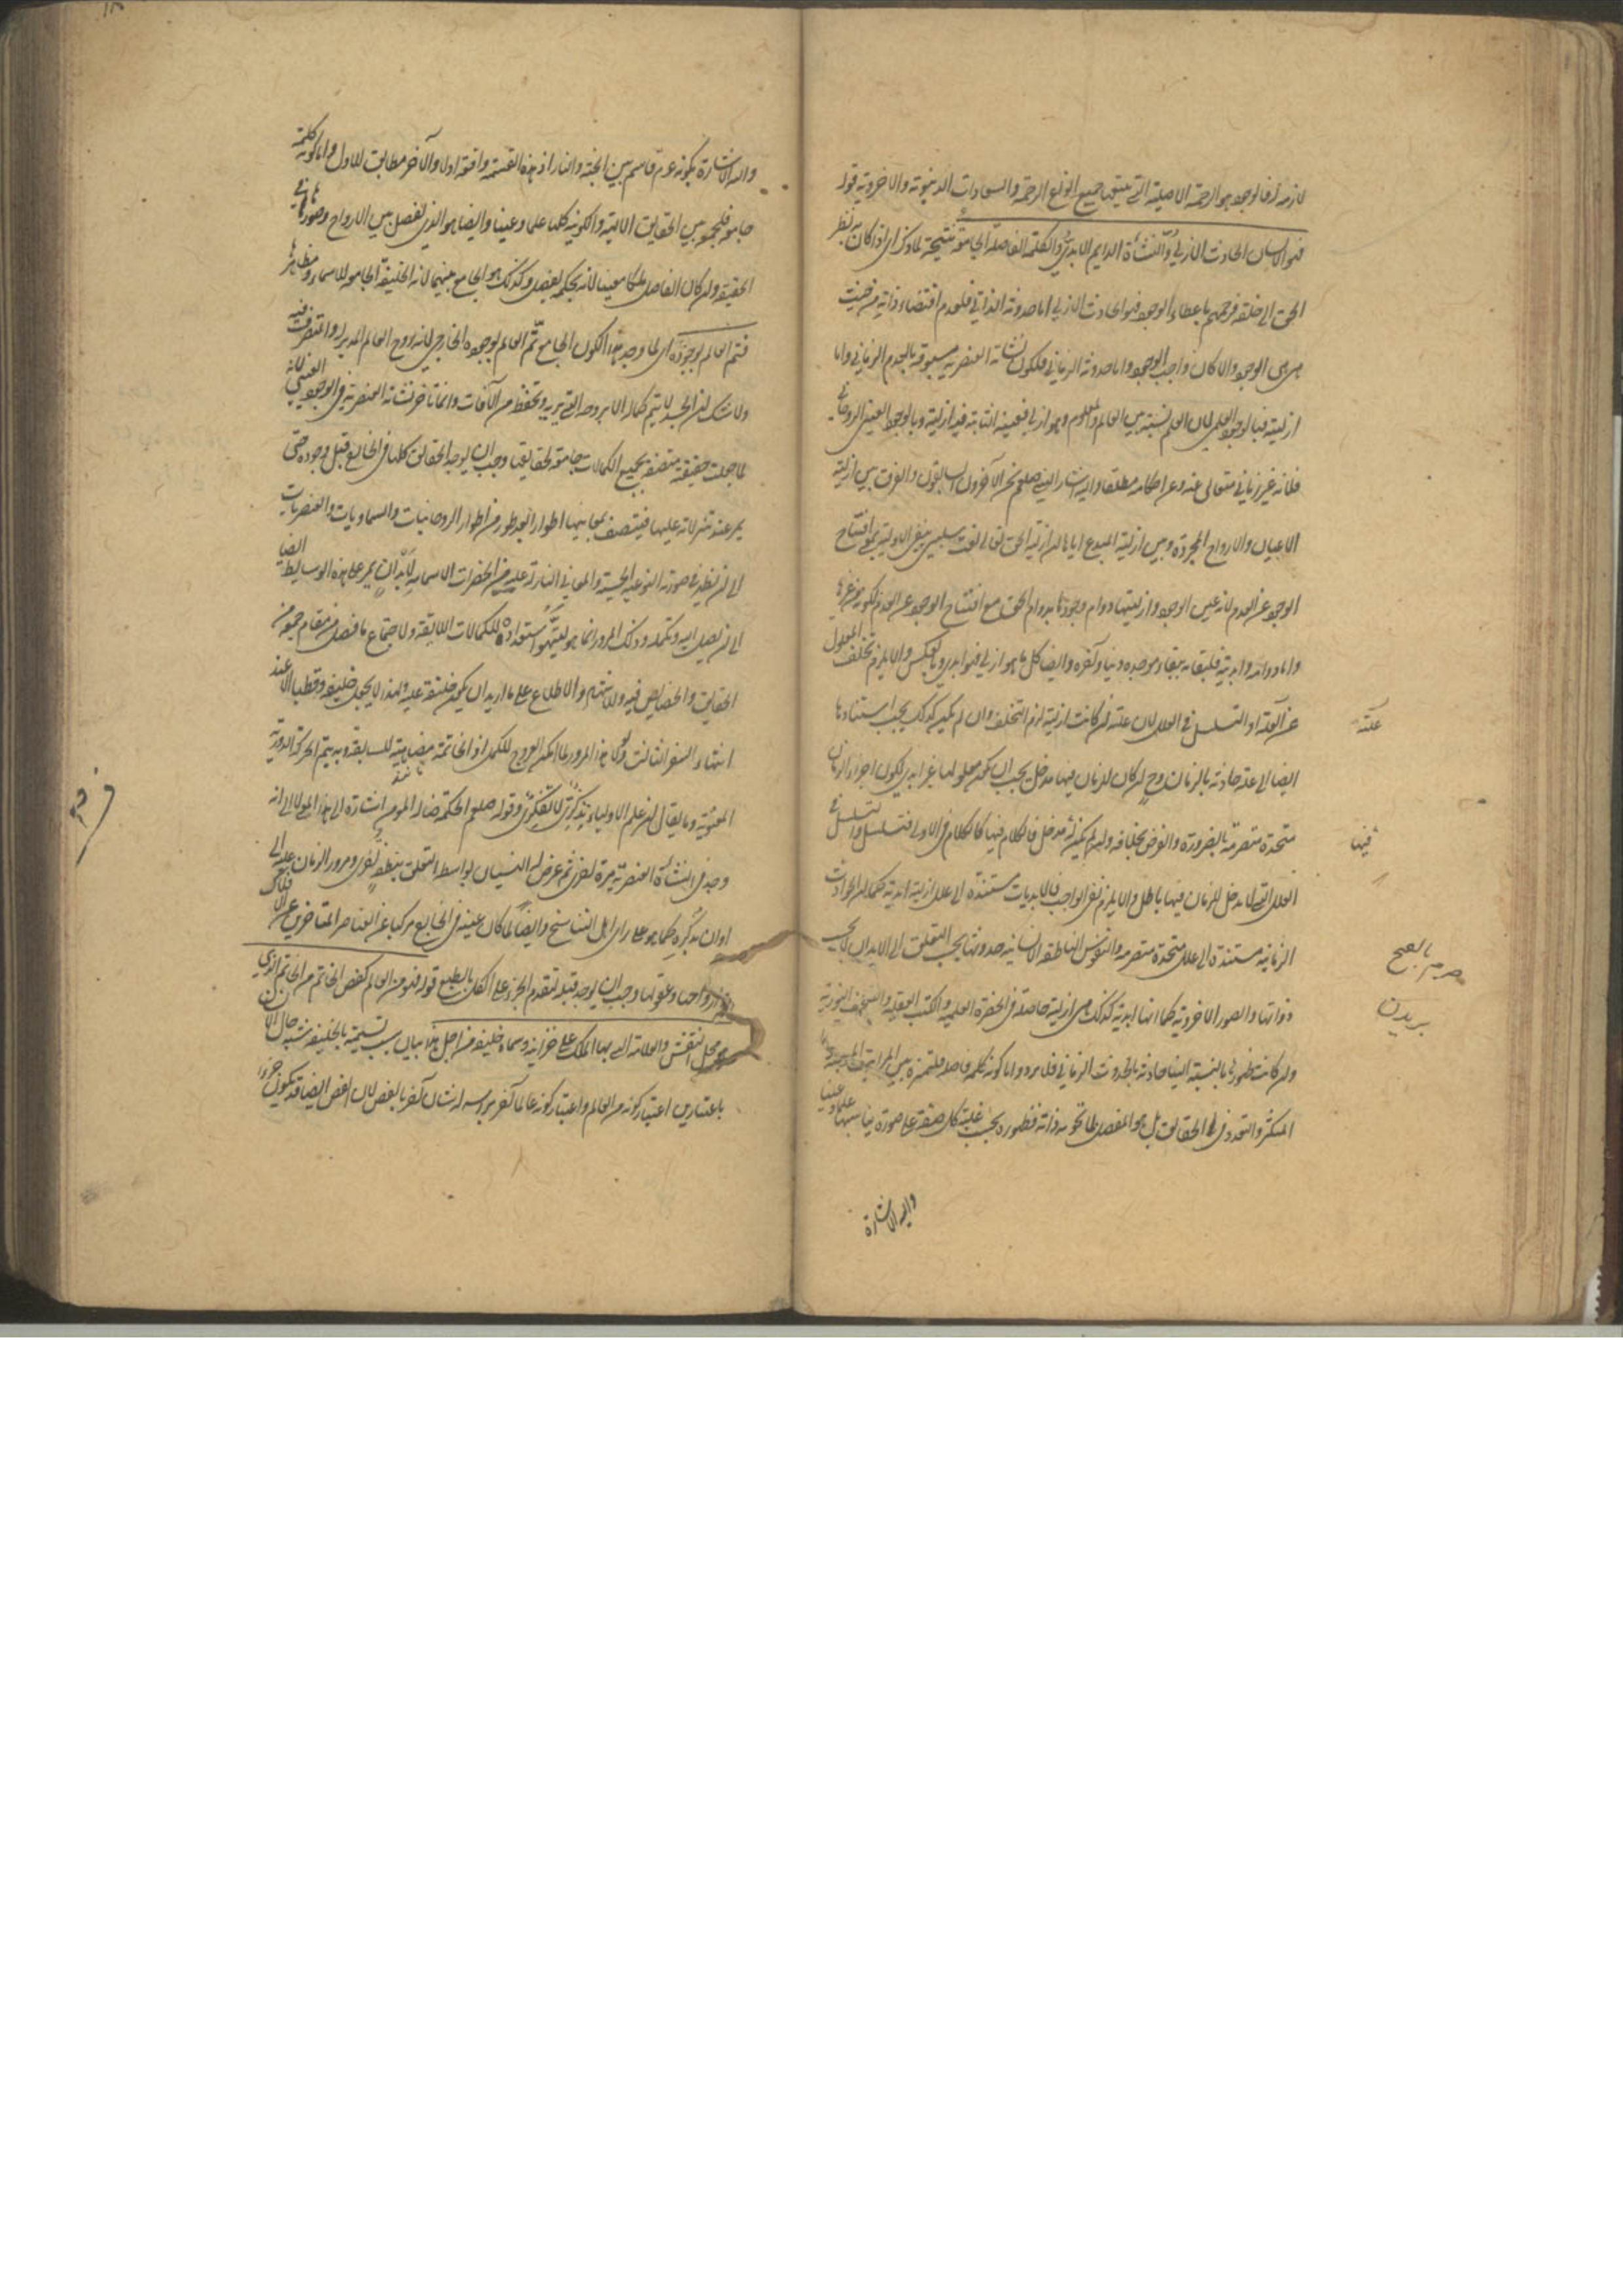 لازمة له فالوجود هو الرحمة الاصلية التي يتبعها جميع انواع الرحمة والسعادات الدنيوية والاخروية قوله
فهو الانسان الحادث الازلي والنشأة الدايم الابدي والكلمة الفاصلة الجامعة نتيجة لما ذكر اي اذا كان به نظر
الحق الى خلقه فرحمهم باعطاء الوجود فهو الحادث الازلي اما حدوثه الذاتي فلعدم اقتضاء ذاته من حيث
هي هي الوجود والا لكان واجب الوجود واما حدوثه الزماني فلكون نشأته العنصرية مسبوقة بالعدم الزماني واما
ازليته فبالوجود العلمي لان العلم نسبة بين العالم والمعلوم وهو ازلي فعينه الثابتة فيه ازلية وبالوجود العيني الروحاني
فلانه غير زماني متعالى عنه وعن احكامه مطلقا واليه اشار النبي صلعم نحن الآخرون السابقون والفرق بين ازلية
الاعيان والارواح المجردة وبين ازلية المبدع اياها ان ازلية الحق تعالى نعت سلبي ينفي الاولية بمعنى افتتاح
الوجود عن العدم لانه عين الوجود وازليتها دوام وجودها بدوام الحق مع افتتاح الوجود عن العدم لكونه من غيرها
واما دوامه وابديته فلبقائه ببقاء موجده دنيا وآخرة وايضا كل ما هو ازلي فهو ابدي وبالعكس والا يلزم تخلف المعلول
عن العلة او التسلسل في العلل لان علته ان كانت ازلية لزم التخلف وان لم يكن كذلك يجب استنادها
علته
ايضا الى علة حادثة بالزمان وح ان كان للزمان فيها مدخل يجب ان يكون معلولها غير ابدي لكون اجزاء الزمان
متجددة متصرمة بالضرورة والفرض بخلافه وان لم يكن له مدخل فالكلام فيها كالكلام في الاولى فيتسلسل والتسلسل في
فيها
العلل التي لا مدخل للزمان فيها باطل والا يلزم نفي الواجب فالابديات مستندة الى علل ازلية ابدية كما ان الحوادث
الزمانية مستندة الى علل متجددة متصرمة والنفوس الناطقة الانسانية حدوثها بحسب التعلق الى الابدان لا بحسب
ذواتها والصور الاخروية كما انها ابدية كذلك هي ازلية حاصلة في الحضرة العلمية والكتب العقلية والصحف النورية
وان كانت ظهورها بالنسبة الينا حادثة بالحدوث الزماني فلا يرد واما كونه كلمة فاصلة فلتميزه بين المراتب الموجبة
التكثر والتعدد في الحقايق بل هو المفصل لما تحويه ذاته فظهوره بحسب غلبة كل صفة على صورة يناسبها علما وعينا
واليه الاشارة
واليه الاشارة بكونه عم قاسم بين الجنة والنار اذ هذه القسمة واقعة اولا والآخر مطابق للاول واما كونه كلمة
جامعة فلجمعه بين الحقايق الالهية والكونية كلها علما وعينا وايضا هو الذي يفصل بين الارواح وصورها في
الحقيقة وان كان الفاصل ملكا معينا لانه بحكمه يفصل وكذلك هو الجامع بينهما لانه الخليفة الجامعة للاسماء ومظاهرها
فتم العالم بوجوده اي لما وجد هذا الكون الجامع تم العالم بوجوده الخارجي لانه روح العالم المدبر له والمتصرف فيه
ولا شك ان الجسد لا يتم كماله الا بروحه التي تدبره وتحفظه من الآفات وانما تأخر نشأته العنصرية في الوجود العيني لانه
لما جعلت حقيقته متصفة بجميع الكمالات جامعة لحقايقها وجب ان يوجد الحقايق كلها في الخارج قبل وجوده حتى
يمر عند تنزلاته عليها فيتصف بمعانيها اطوارا بعد طور من اطوار الروحانيات والسماويات والعنصريات
الى ان يظهر في صورته النوعية الحسية والمعاني النازلة عليه من الحضرات الاسمائية لا بد ان يمر على هذه الوسايط ايضا
الى ان يصل اليه وتكمله وذلك المرور انما هو لتهيؤ استعداده للكمالات اللايقة ولاجتماع ما فصل من مقام جمعه من
الحقايق والخصايص فيه وللاشهاد والاطلاع على ما اريد ان يكون خليفة عليه ولهذا لا يجعل خليفة وقطبا الا عند
انتهاء السفر الثالث ولولا هذا المرور لما امكن العروج للكمل اذ الخاتمة مضاهية للسابقة وبه يتم الحركة الدورية
المعنوية وما يقال ان علم الاولياء تذكري لا تفكري وقوله صلعم الحكمة ضالة المؤمن اشارة الى هذا المعنى لا الى انه
وجد في النشأة العنصرية مرة اخرى ثم عرض له النسيان بواسطة التعلق بنطفة اخرى ومرور الزمان عليه الى
اوان تذكره كما هو على راي اهل التناسخ وايضا لما كان عينه في الخارج مركبا عن العناصر المتاخرة عن الافلاك
وارواحها وعقولها وجب ان يوجد قبله لتقدم الجزء على الكل بالطبع قوله فهو من العالم كفص الخاتم من الخاتم الذي
هو محل النقش والعلامة التي بها الملك على خزاينه وسماه خليفة من اجل هذا بيان سبب تسميته بالخليفة شبه حال الانسان
باعتبارين اعتبار كونه من العالم واعتبار كونه عالما آخر براسه لشان آخر بالفص لان الفص ايضا قد يكون جزءا